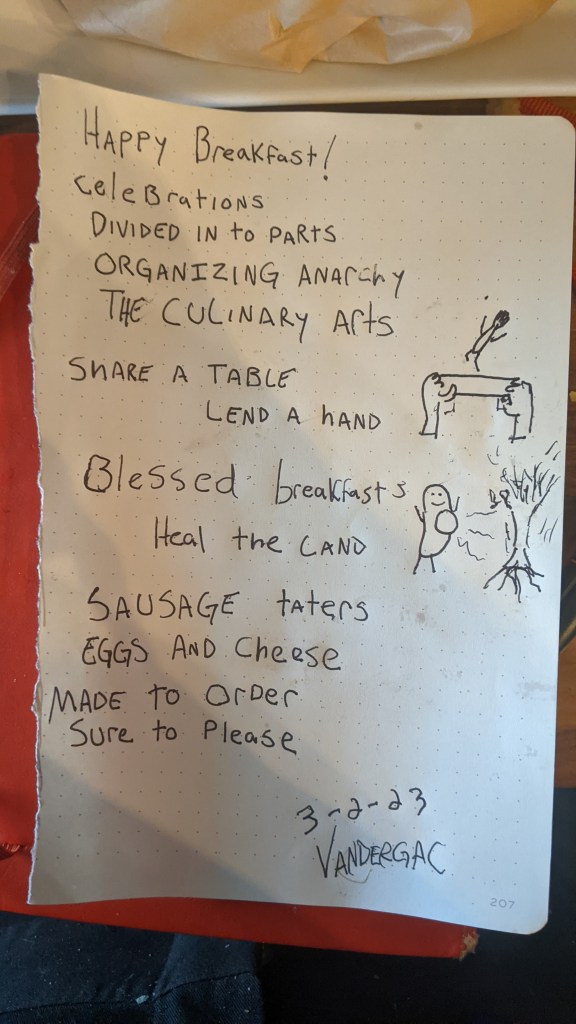 HAPPY Breakfast!
CeleBrations
DIVIDED IN to PARTS
ORGANIZING ANArchy
THE CULINARY Arts
SHARE A TABLE
LEND A hAND
Blessed breakfasts
Heal the LAND
SAUSAGE tAters
EGGS AND Cheese
MADE to OrDer
Sure to Please
3-2-23
VANDERGAC
207